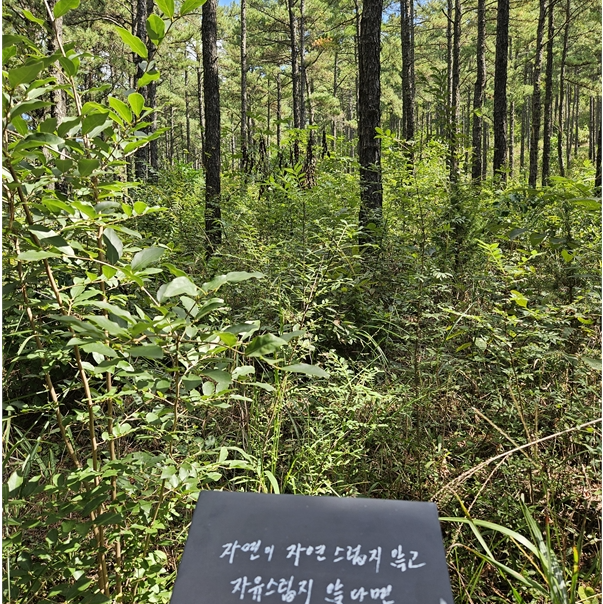 자연이 자연스럽지 않고
자유스럽지 않다면